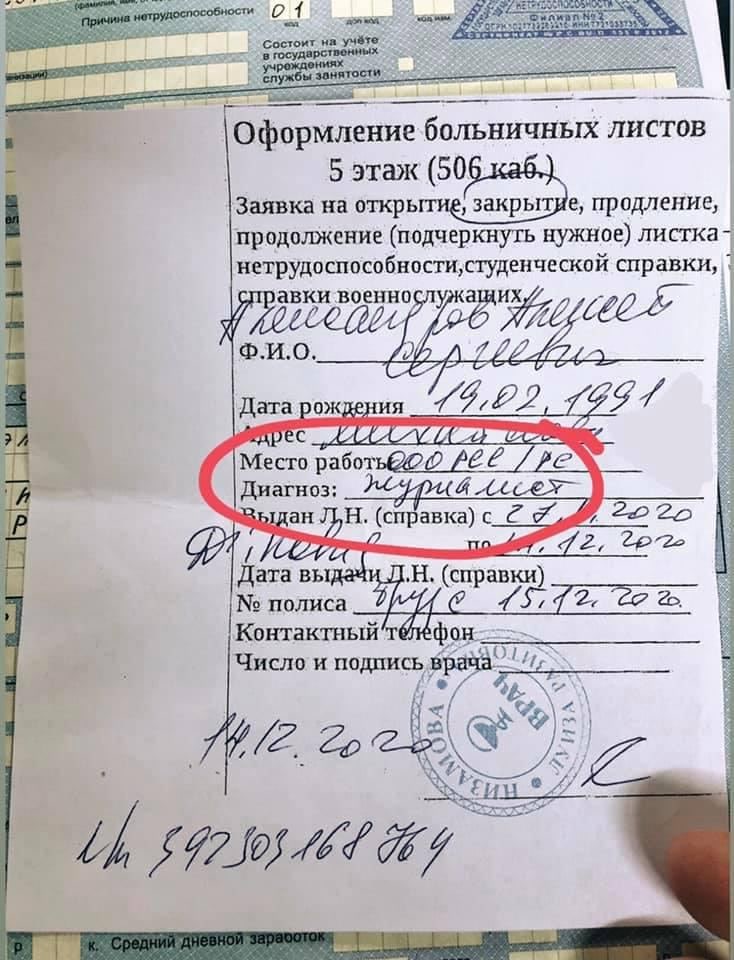 Причина нетрудоспособности 01
код
доп код
код изм.
НЕТРУДОСПОСОБНОСТИ
Филиал №2
Состоит на учёте
в государственных
учреждениях
службы занятости
Оформление больничных листов
5 этаж (506 каб.)
Заявка на открытие, закрытие, продление,
продолжение (подчеркнуть нужное) листка
нетрудоспособности,студенческой справки,
справки военнослужащих.
Александров Алексей
Ф.И.О. Сергеевич
Дата рождения 19.02.1991
Адрес
Место работы ООО
Диагноз: журналист
Выдан Л.Н. (справка) с 27.11.2020
по 14.12.2020
Дата выдачи Л.Н. (справки)
№ полиса 15.12.2020.
Контактный телефон
Число и подпись врача
НИЗАМОВА ЛУИЗА РАЗИТОВНА
ВРАЧ
14.12.2020
392303168764
к. Средний дневной заработок